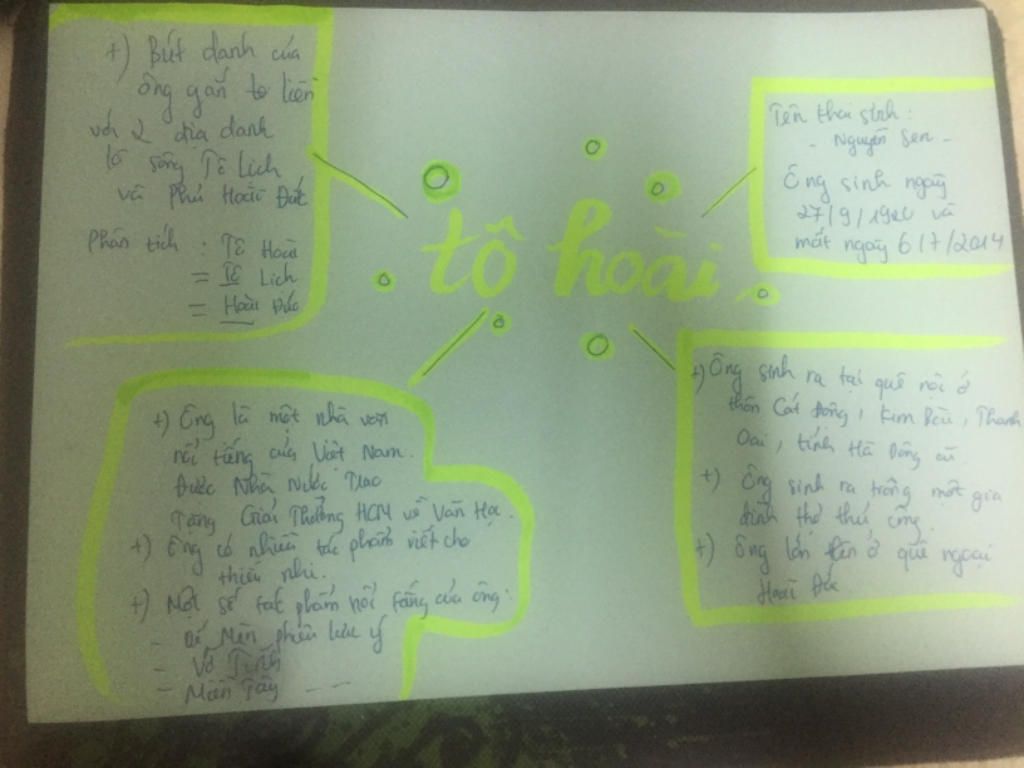 +) Bút danh của
ông gắn liền
với 2 địa danh
là sông Tô Lịch
và Phủ Hoài Đức
Phân tích : Tô Hoài
= Tô Lịch
= Hoài Đức
tô hoài
Tên khai sinh :
- Nguyễn Sen -
Ông sinh ngày
27/9/1920 và
mất ngày 6/7/2014
+) Ông là một nhà văn
nổi tiếng của Việt Nam.
Được Nhà Nước Trao
Tặng Giải Thưởng HCM về Văn Học.
+) Ông có nhiều tác phẩm viết cho
thiếu nhi.
+) Một số tác phẩm nổi tiếng của ông:
- Dế Mèn phiêu lưu ký
- Vỡ Tỉnh
- Miền Tây ---
+) Ông sinh ra tại quê nội ở
thôn Cát Động, Kim Bài, Thanh
Oai, tỉnh Hà Đông cũ.
+) Ông sinh ra trong một gia
đình thợ thủ công.
+) Ông lớn lên ở quê ngoại
Hoài Đức